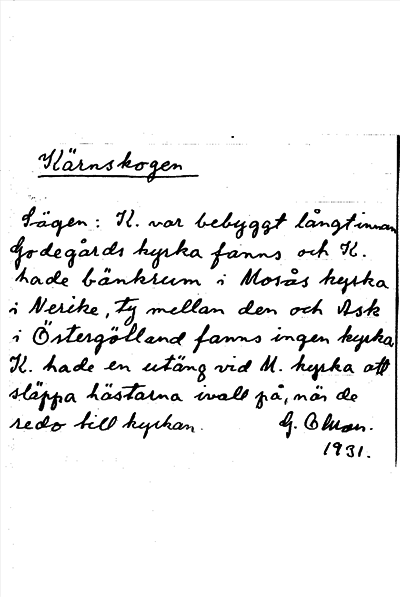 Kärnskogen
Sägen: K. var bebyggt långt innan
Godegårds kyrka fanns och K.
hade bänkrum i Mosås kyrka
i Nerike, ty mellan den och Ask
i Östergötland fanns ingen kyrka
K. hade en utäng vid M. kyrka att
släppa hästarna i vall på, när de
redo till kyrkan. G.
1931.